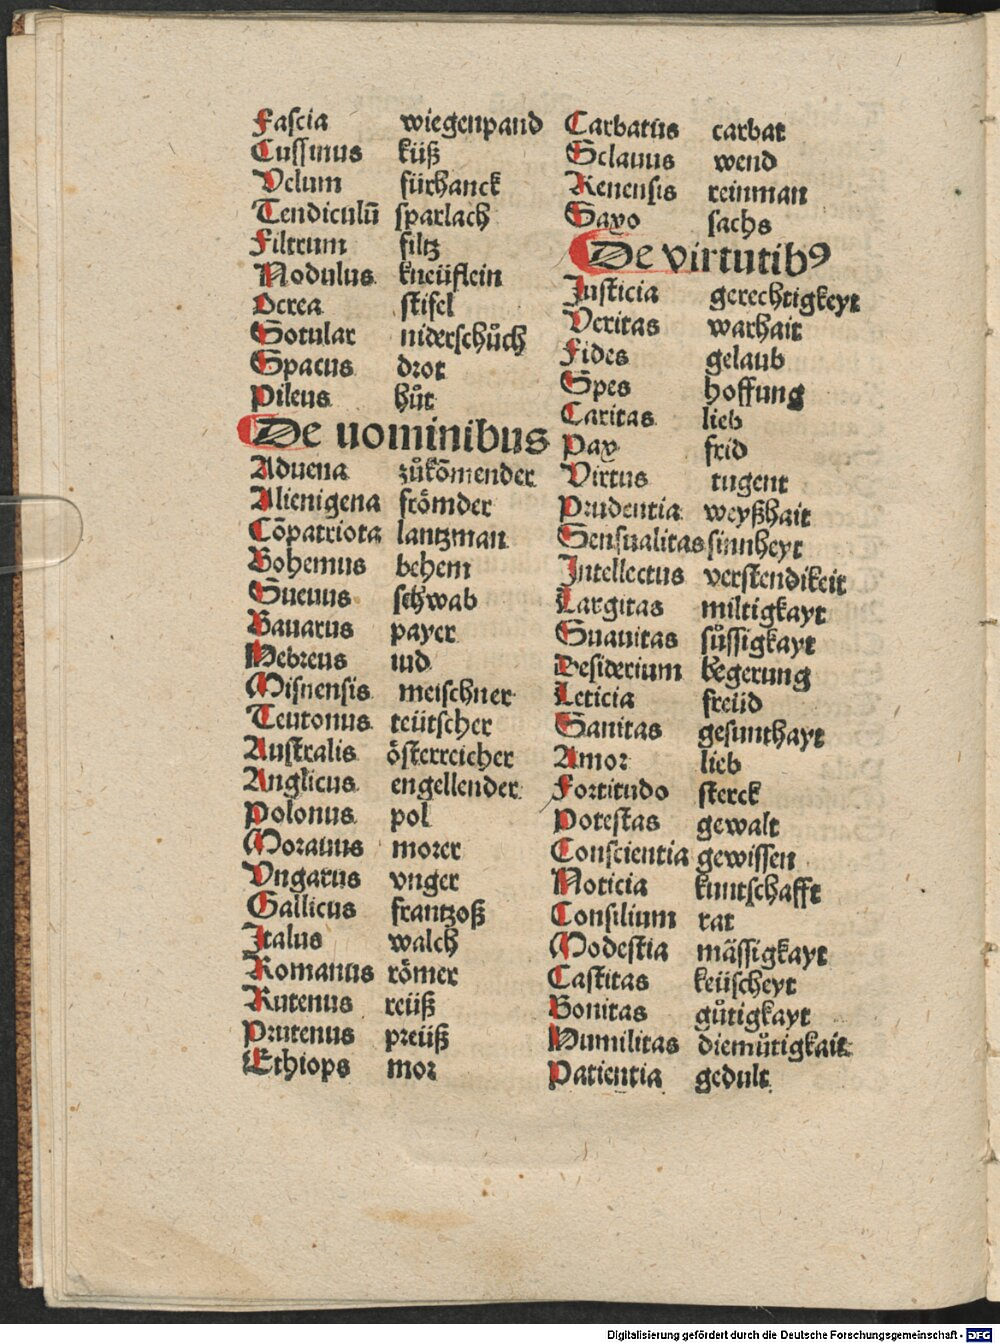 Fascia wiegenpand
Cussinus küß
Velum fürhanck
Tendiculū sparlach
Filtrum filtz
Nodulus kneüflein
Ocrea stifel
Sotular niderschůch
Spacus drot
Pileus hůt
De uominibus
Aduena zůkōmender
Alienigena frömder
Cōpatriota lantzman
Bohemus behem
Sueuus schwab
Bauarus payer
Hebreus iud
Misnensis meischner
Teutonus teütscher
Australis österreicher
Anglicus engellender
Polonus pol
Morauus morer
Vngarus vnger
Gallicus frantzoß
Italus walch
Romanus römer
Rutenus reüß
Prutenus preüß
Ethiops mor
Carbatus carbat
Sclauus wend
Renensis reinman
Saxo sachs
De virtutibꝰ
Justicia gerechtigkeyt
Veritas warhait
Fides gelaub
Spes hoffung
Caritas lieb
Pax frid
Virtus tugent
Prudentia weyßhait
Sensualitas sinnheyt
Intellectus verstendikeit
Largitas miltigkayt
Suauitas sůssigkayt
Desiderium begerung
Leticia freüd
Sanitas gesunthayt
Amor lieb
Fortitudo sterck
Potestas gewalt
Conscientia gewissen
Noticia kuntschafft
Consilium rat
Modestia mässigkayt
Castitas keüscheyt
Bonitas gůtigkayt
Humilitas diemůtigkait
Patientia gedult
Digitalisierung gefördert durch die Deutsche Forschungsgemeinschaft - DFG